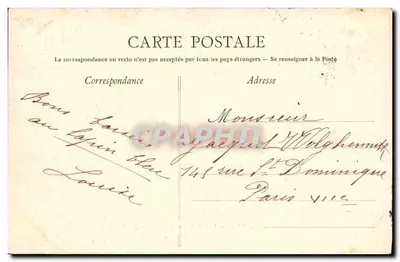 CARTE POSTALE
La correspondance au recto n'est pas acceptée par tous les pays étrangers. — Se renseigner à la Poste
Correspondance
Adresse
Bons
au lapin bleu
Louise
Monsieur
Jacques
145 rue St Dominique
Paris VIIe
CPAPHIL